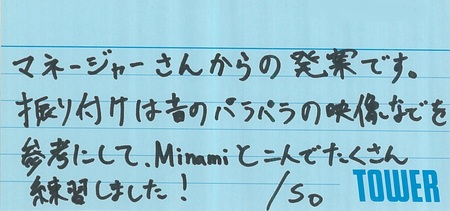 マネージャーさんからの発案です。
振り付けは昔のパラパラの映像などを
参考にして、Minamiと二人でたくさん
練習しました！
/So
TOWER